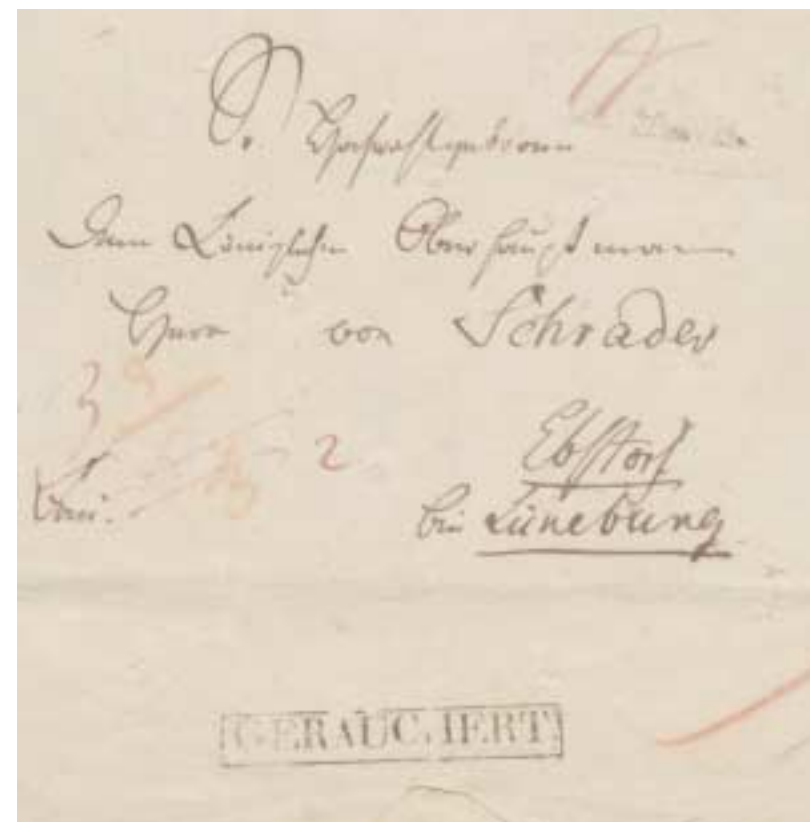 Sr. Hochwohlgeboren
Dem Königlichen Oberhauptmann
Herrn von Schrader
3
2
Ebstorf
frei.
bei Lüneburg
GERAUCHERT.